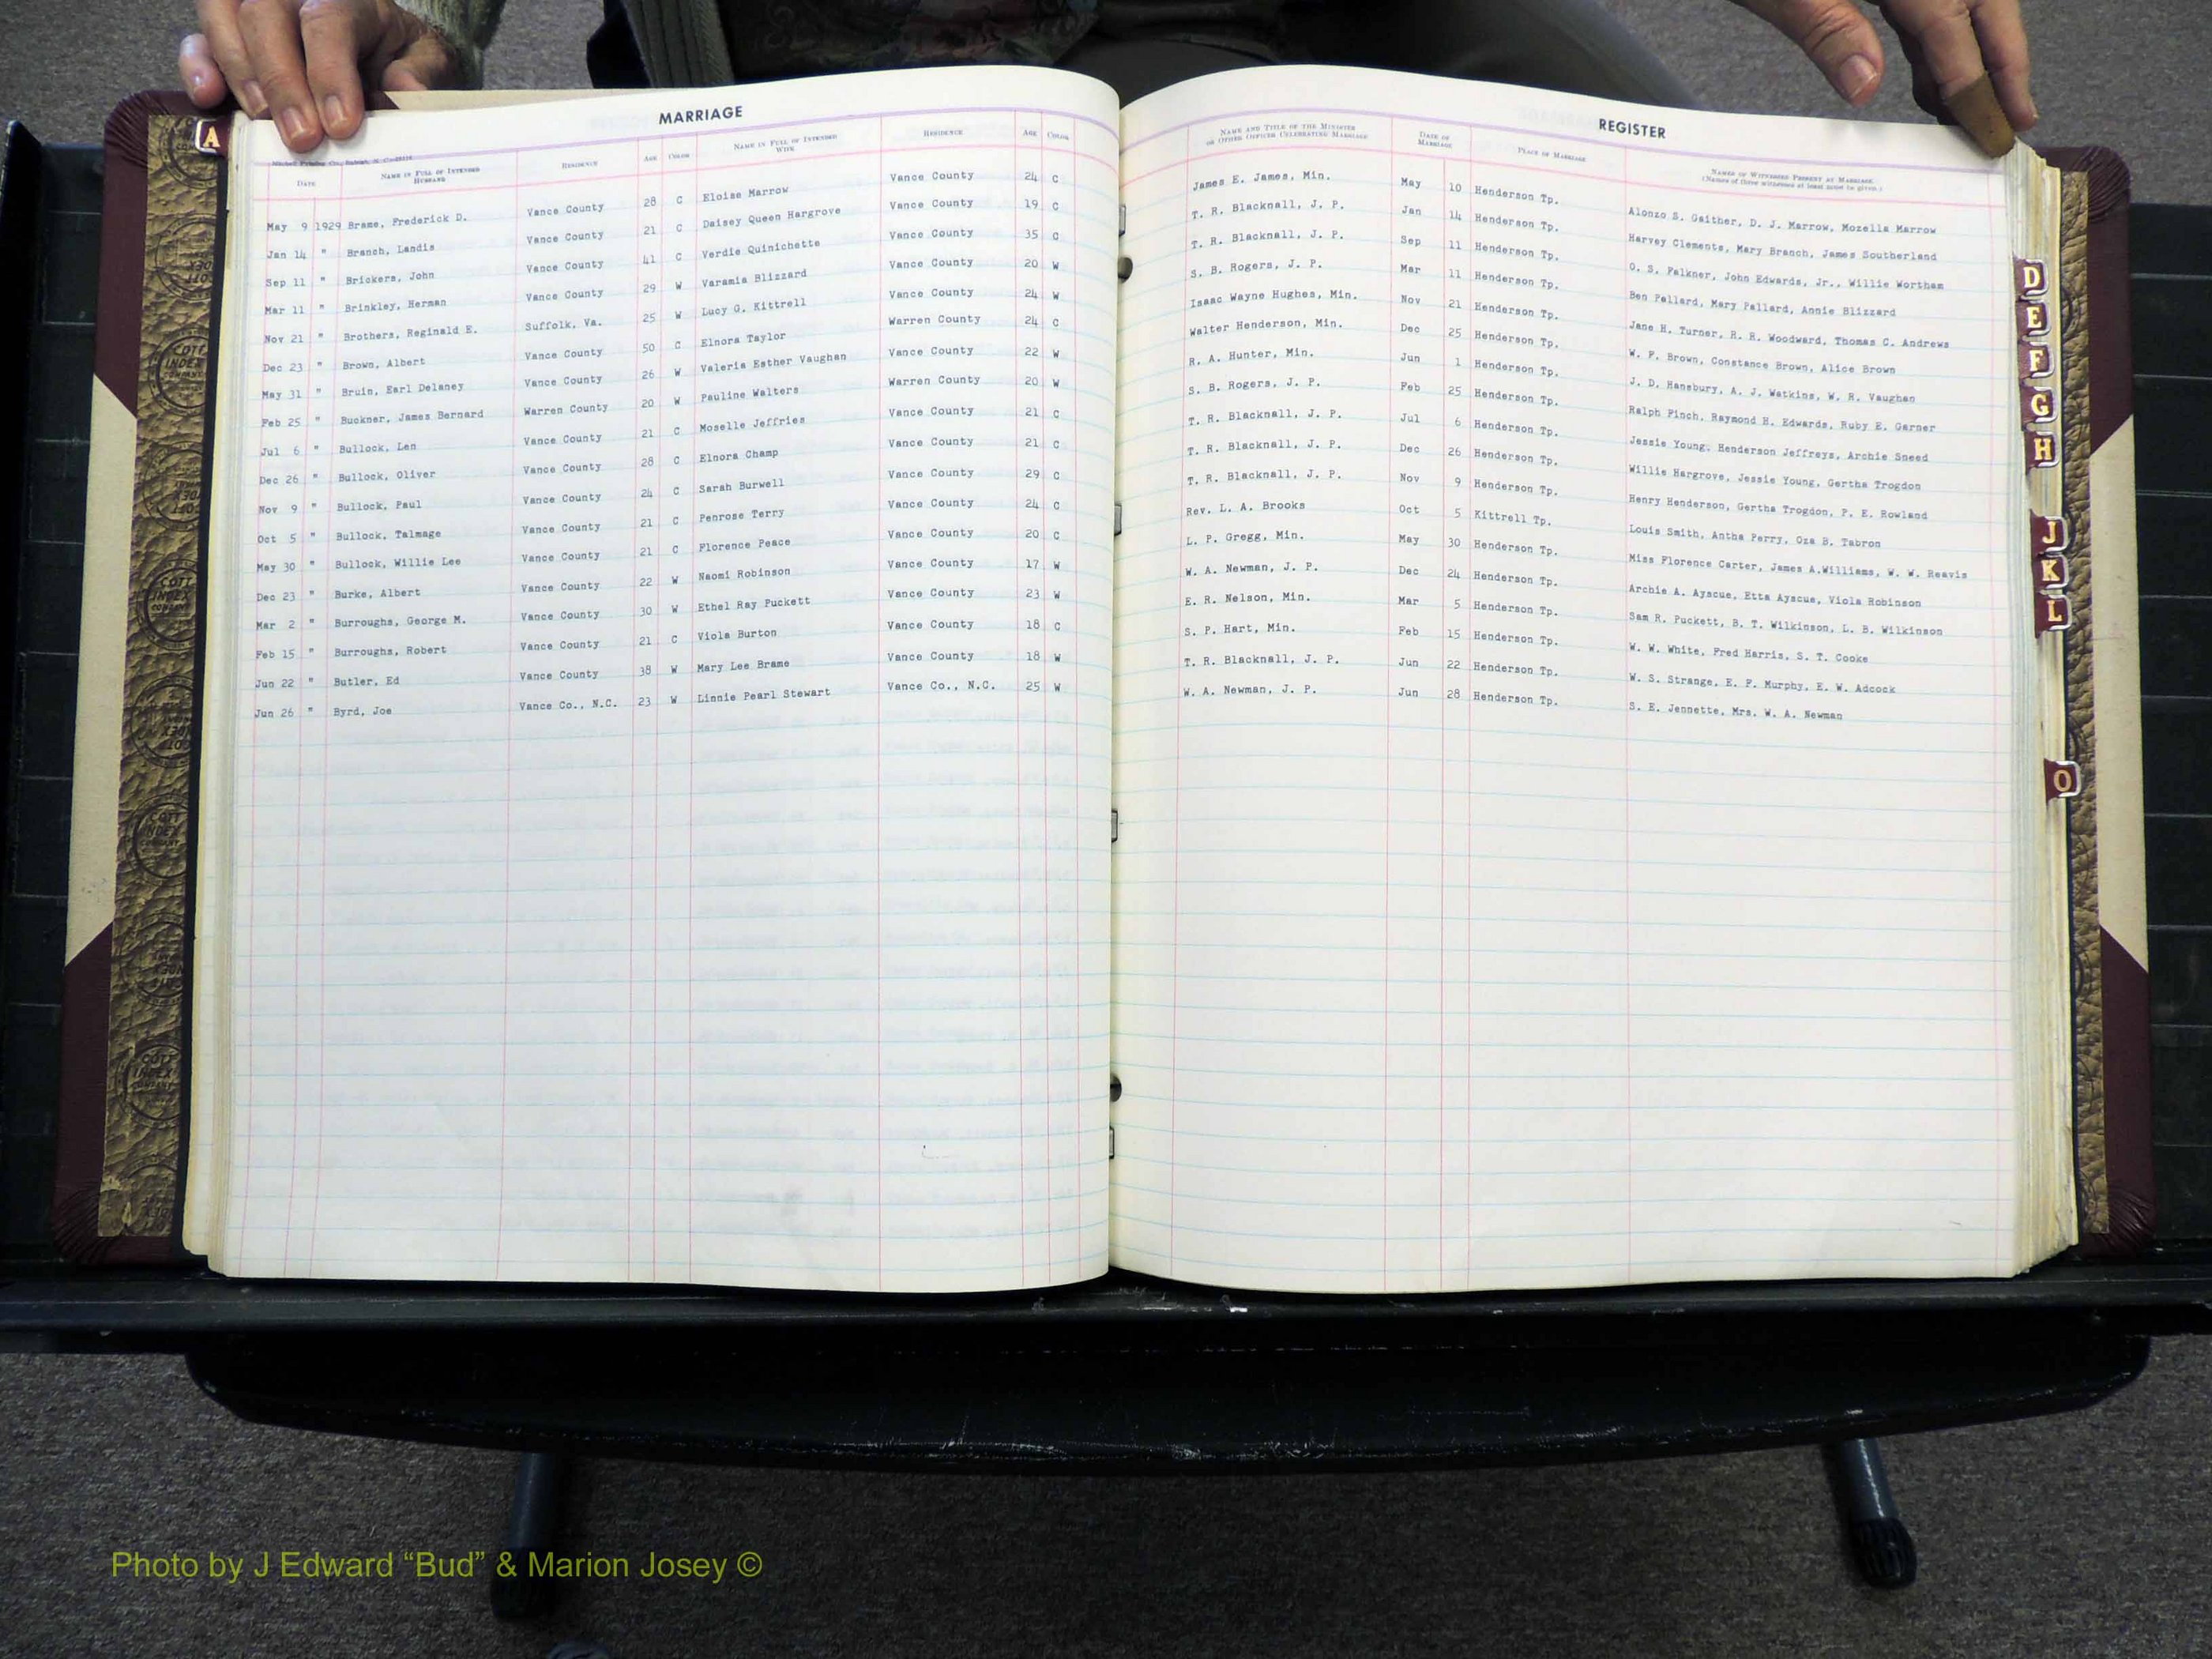 MARRIAGE
DATE NAME IN FULL OF INTENDED HUSBAND RESIDENCE AGE COLOR NAME IN FULL OF INTENDED WIFE RESIDENCE AGE COLOR
May 9 1929 Brame, Frederick D. Vance County 28 C Eloise Marrow Vance County 24 C
Jan 14 " Branch, Landis Vance County 21 C Daisey Queen Hargrove Vance County 19 C
Sep 11 " Brickers, John Vance County 41 C Verdie Quinichette Vance County 35 C
Mar 11 " Brinkley, Herman Vance County 29 W Varamia Blizzard Vance County 20 W
Nov 21 " Brothers, Reginald E. Suffolk, Va. 25 W Lucy G. Kittrell Vance County 24 W
Dec 23 " Brown, Albert Vance County 50 C Elnora Taylor Warren County 24 C
May 31 " Bruin, Earl Delaney Vance County 26 W Valeria Esther Vaughan Vance County 22 W
Feb 25 " Buckner, James Bernard Warren County 20 W Pauline Walters Warren County 20 W
Jul 6 " Bullock, Len Vance County 21 C Moselle Jeffries Vance County 21 C
Dec 26 " Bullock, Oliver Vance County 28 C Elnora Champ Vance County 21 C
Nov 9 " Bullock, Paul Vance County 24 C Sarah Burwell Vance County 29 C
Oct 5 " Bullock, Talmage Vance County 21 C Penrose Terry Vance County 24 C
May 30 " Bullock, Willie Lee Vance County 21 C Florence Peace Vance County 20 C
Dec 23 " Burke, Albert Vance County 22 W Naomi Robinson Vance County 17 W
Mar 2 " Burroughs, George M. Vance County 30 W Ethel Ray Puckett Vance County 23 W
Feb 15 " Burroughs, Robert Vance County 21 C Viola Burton Vance County 18 C
Jun 22 " Butler, Ed Vance County 38 W Mary Lee Brame Vance County 18 W
Jun 26 " Byrd, Joe Vance Co., N.C. 23 W Linnie Pearl Stewart Vance Co., N.C. 25 W
REGISTER
NAME AND TITLE OF THE MINISTER OR OTHER OFFICER CELEBRATING MARRIAGE DATE OF MARRIAGE PLACE OF MARRIAGE NAMES OF WITNESSES PRESENT AT MARRIAGE
(Names of three witnesses at least must be given.)
James E. James, Min. May 10 Henderson Tp. Alonzo S. Gaither, D. J. Marrow, Mozella Marrow
T. R. Blacknall, J. P. Jan 14 Henderson Tp. Harvey Clements, Mary Branch, James Southerland
T. R. Blacknall, J. P. Sep 11 Henderson Tp. O. S. Falkner, John Edwards, Jr., Willie Wortham
S. B. Rogers, J. P. Mar 11 Henderson Tp. Ben Pallard, Mary Pallard, Annie Blizzard
Isaac Wayne Hughes, Min. Nov 21 Henderson Tp. Jane H. Turner, R. R. Woodward, Thomas C. Andrews
Walter Henderson, Min. Dec 25 Henderson Tp. W. F. Brown, Constance Brown, Alice Brown
R. A. Hunter, Min. Jun 1 Henderson Tp. J. D. Hansbury, A. J. Watkins, W. R. Vaughan
S. B. Rogers, J. P. Feb 25 Henderson Tp. Ralph Finch, Raymond H. Edwards, Ruby E. Garner
T. R. Blacknall, J. P. Jul 6 Henderson Tp. Jessie Young, Henderson Jeffreys, Archie Sneed
T. R. Blacknall, J. P. Dec 26 Henderson Tp. Willie Hargrove, Jessie Young, Gertha Trogdon
T. R. Blacknall, J. P. Nov 9 Henderson Tp. Henry Henderson, Gertha Trogdon, P. E. Rowland
Rev. L. A. Brooks Oct 5 Kittrell Tp. Louis Smith, Antha Perry, Oza B. Tabron
L. P. Gregg, Min. May 30 Henderson Tp. Miss Florence Carter, James A.Williams, W. W. Reavis
W. A. Newman, J. P. Dec 24 Henderson Tp. Archie A. Ayscue, Etta Ayscue, Viola Robinson
E. R. Nelson, Min. Mar 5 Henderson Tp. Sam R. Puckett, B. T. Wilkinson, L. B. Wilkinson
S. P. Hart, Min. Feb 15 Henderson Tp. W. W. White, Fred Harris, S. T. Cooke
T. R. Blacknall, J. P. Jun 22 Henderson Tp. W. S. Strange, E. F. Murphy, E. W. Adcock
W. A. Newman, J. P. Jun 28 Henderson Tp. S. E. Jennette, Mrs. W. A. Newman
A
D
E
F
G
H
J
K
L
O
COTT INDEX COMPANY
Photo by J Edward “Bud” & Marion Josey ©